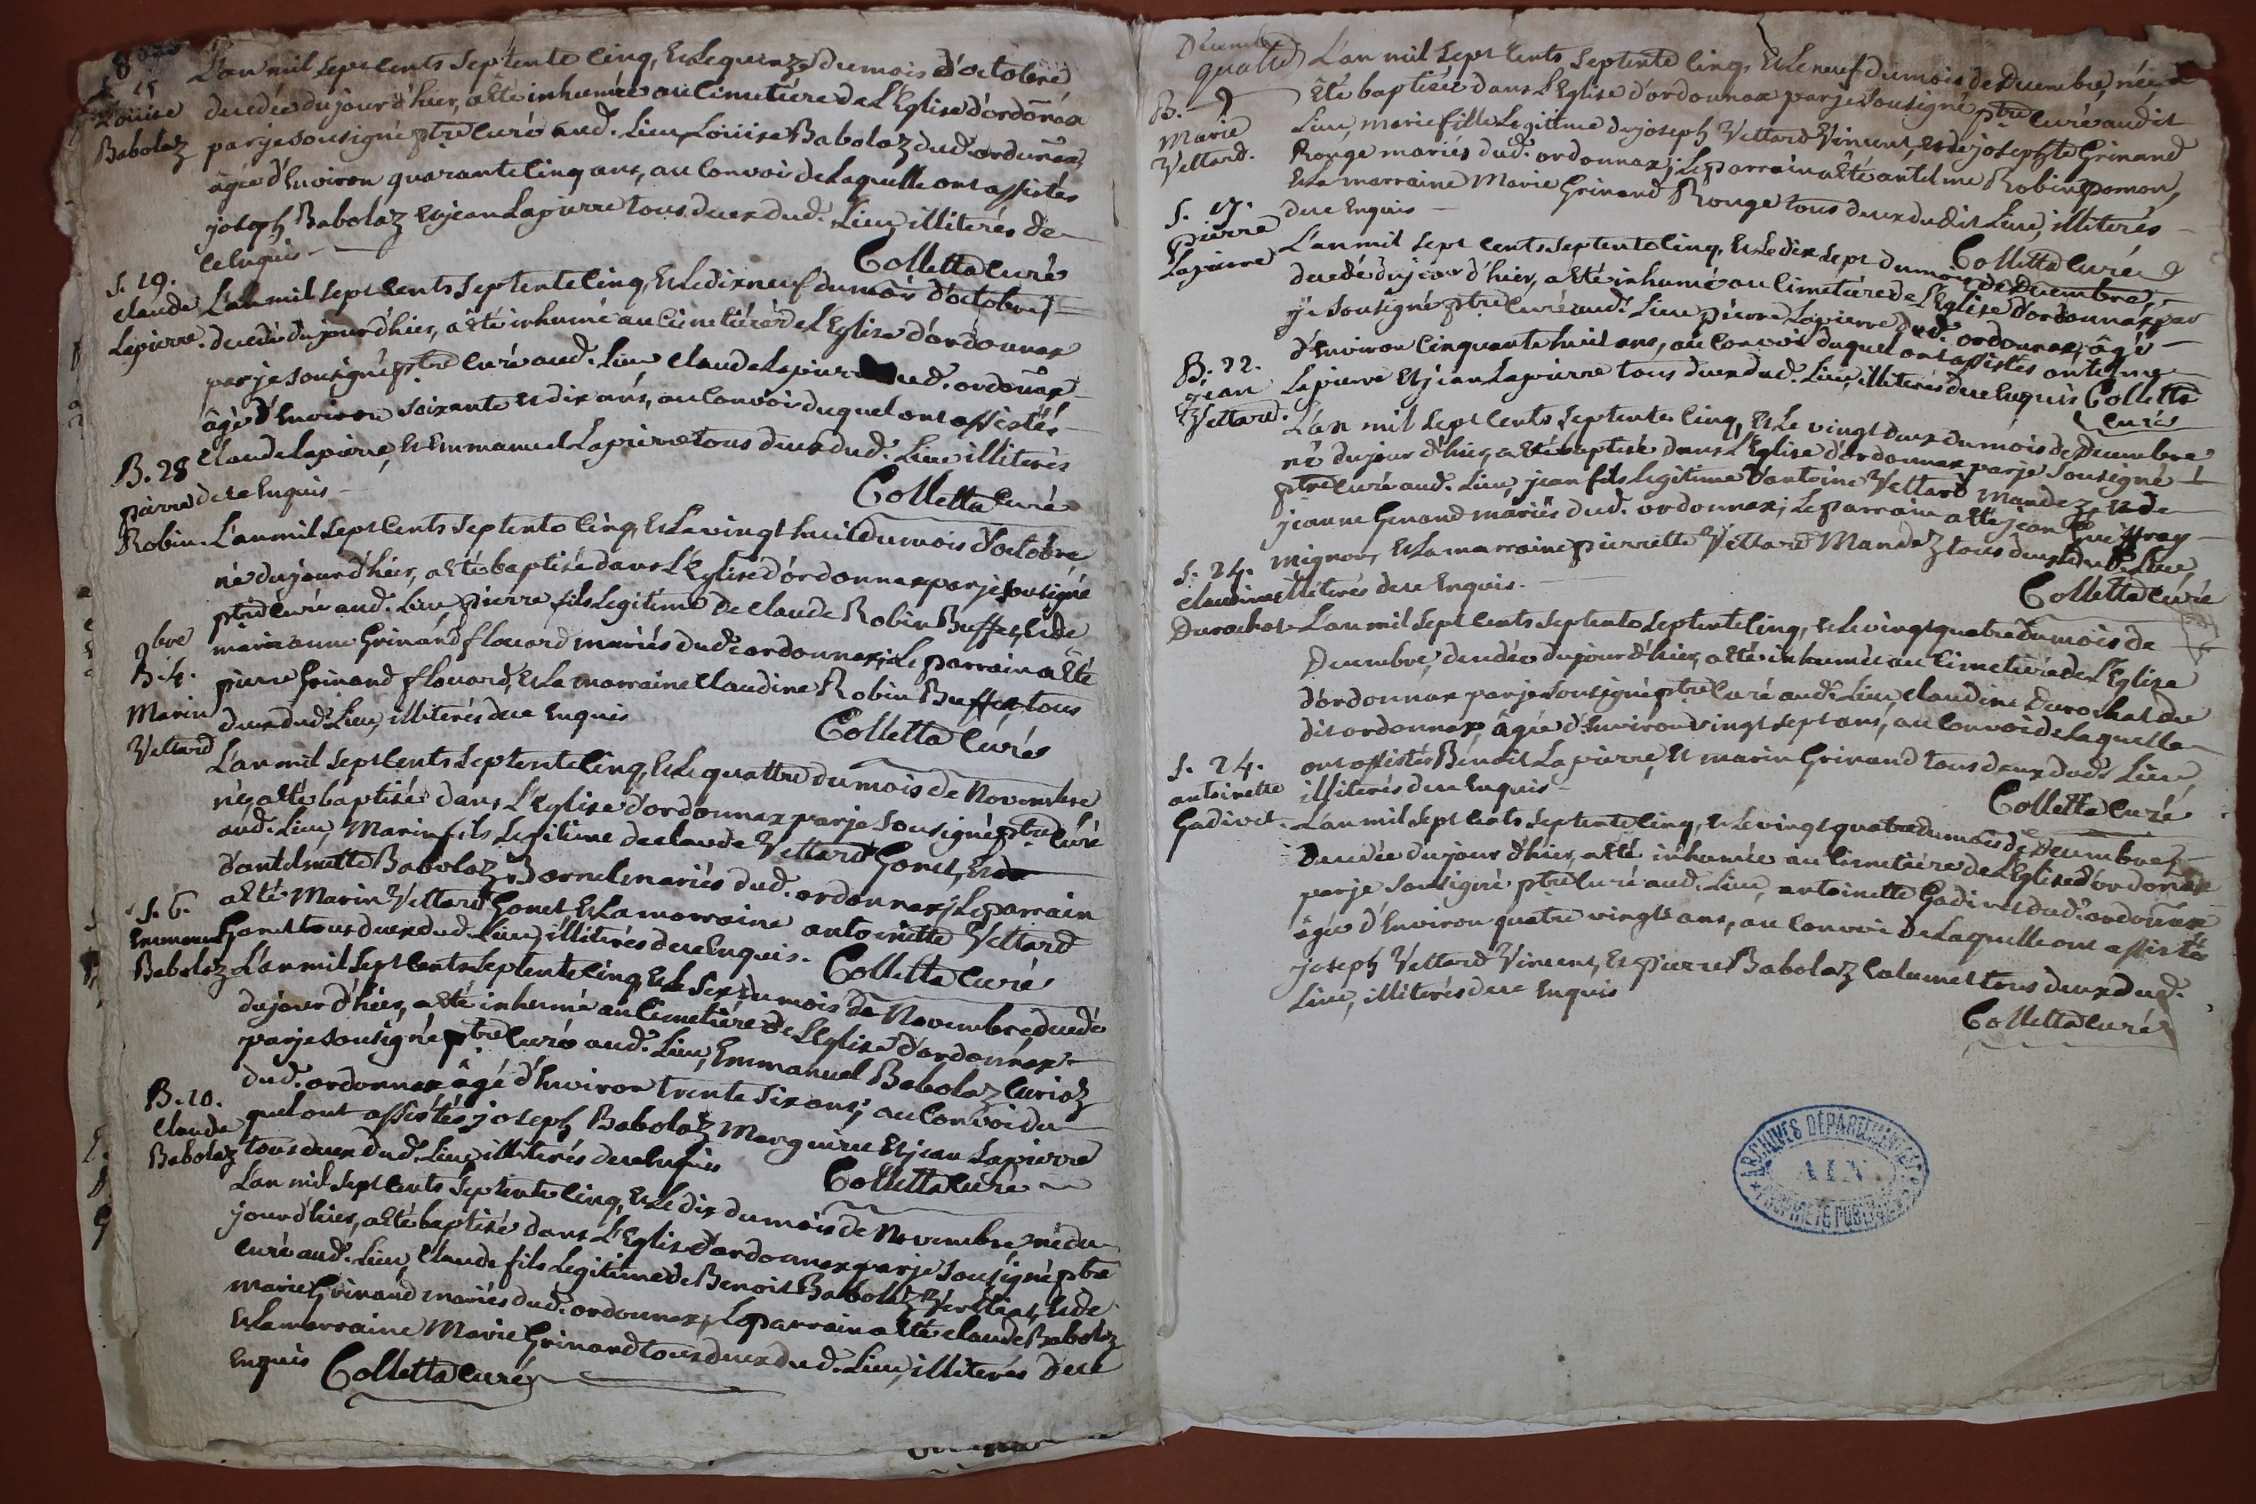 8bre
S. 15
Louise
Babolaz
L'an mil sept cents septente cinq, et le quinze du mois d'octobre
decedée du jour d'hier, a été inhumée au Cimetiere de l'Eglise d'ordonax
par je sousigné ptre curé aud. lieu, Loüise Babolaz dud. ordonax,
âgée d'environ quarante cinq ans, au convoi de laquelle ont assistés
joseph Babolaz et jean Lapierre tous deux dud. lieu, illiterés de
ce enquis
Colletta curé
S. 19.
claude
Lapierre.
L'an mil sept cents septente cinq, et le dixneuf du mois d'octobre,
decedé du jour d'hier, a été inhumé au cimetière de l'Eglise d'ordonnax
par je sousigné ptre curé aud. lieu claude Lapierre dud. ordonax
âgé d'environ soixante et dix ans, au convoi duquel ont assistés
claude Lapierre, et Emmanuel Lapierre tous deux dud. lieu illiterés
de ce enquis
Colletta curé
B. 28
pierre
Robin.
L'an mil sept cents septente cinq, et le vingt huit du mois d'octobre,
né du jour d'hier, a été baptisé dans l'Eglise d'ordonnax par je sousigné
ptre curé aud. lieu pierre fils legitime de claude Robin Buffet, et de
marianne Grinand flouard mariés dud. ordonnax; le parrain a été
pierre Grinand flouard, et la marraine claudine Robin Buffet, tous
deux dud. lieu, illiterés de ce enquis
Colletta curé
9bre
B. 4.
Marin
Vettard
L'an mil sept cents septente cinq, et le quattre du mois de Novembre
né, a été baptisé dans l'Eglise d'ordonnax par je sousigné ptre curé
aud. lieu, Marin fils legitime de claude Vettard Gonet, et de
d'antelmette Babolaz Bornel mariés dud. ordonnax; le parrain
a été Marin Vettard Gonet, et la marraine antoinette Vettard
Gonet tous deux dud. lieu, illiterés de ce enquis.
Colletta curé
S. 6.
Emmanuel
Babolaz
L'an mil sept cents septente cinq, et le six du mois de Novembre, decedé
du jour d'hier, a été inhumé au cimetière de l'Eglise d'ordonnax
par je sousigné ptre curé aud. lieu, Emmanuel Babolaz Curioz
dud. ordonnax âgé d'environ trente six ans; au convoi du
quel ont assistés joseph Babolaz Marguire et jean Lapierre
tous deux dud. lieu illiterés de ce enquis
Colletta curé
B. 10.
Claude
Babolaz
L'an mil sept cents septente cinq, et le dix du mois de Novembre, né du
jour d'hier, a été baptisé dans l'Eglise d'ordonnax par je sousigné ptre
curé aud. lieu, claude fils legitime de Benoit Babolaz, et de
marie Grinand mariés dud. ordonnax, le parrain a été claude Babolaz
et la marraine Marie Grinand tous deux dud. lieu, illiterés de ce
enquis Colletta curé
Decembre
quatre
B. 9
Marie
Vettard.
L'an mil sept cents septente cinq, et le neuf du mois de Decembre, née
été baptisée dans l'Eglise d'ordonnax par je sousigné ptre curé audit
lieu, marie fille legitime de joseph Vettard Vincent, et de josephte Grinand
Rouge mariés dud. ordonnax; le parrain a été antelme Robin pomon,
et la marraine Marie Grinand Rouge tous deux dudit lieu, illiterés
de ce enquis
Colletta curé
S. 17.
pierre
Lapierre
L'an mil sept cents septente cinq, et le dix sept du mois de Decembre,
decedé du jour d'hier, a été inhumé au cimetière de l'Eglise d'ordonnax par
je sousigné ptre curé aud. lieu pierre Lapierre dud. ordonnax, âgé
d'environ cinquante huit ans, au convoi duquel ont assistés antelme
Lapierre et jean Lapierre tous deux dud. lieu, illiterés de ce enquis Colletta
curé
B. 22.
jean
Vettard.
L'an mil sept cents septente cinq, et le vingt deux du mois de Decembre
né du jour d'hier, a été baptisé dans l'Eglise d'ordonnax par je sousigné
ptre curé aud. lieu, jean fils legitime d'antoine Vettard Mandez, et de
jeanne Genand mariés dud. ordonnax; le parrain a été jean
mignon, et la marraine pierrette Vettard Mandez tous deux dud. lieu
illiterés de ce enquis.
Colletta curé
S. 24.
claudine
Durochat
L'an mil sept cents septente septente cinq, et le vingt quatre du mois de
Decembre, decedée du jour d'hier, a été inhumée au cimetière de l'Eglise
d'ordonnax par je sousigné ptre curé aud. lieu, claudine Durochat du
dit ordonnax, âgée d'environ vingt sept ans, au convoi de laquelle
ont assistés Benoit Lapierre, et marin Grinand tous deux dud. lieu
illiterés de ce enquis
Colletta curé
S. 24.
antoinette
Gadivet.
L'an mil sept cents septente cinq, et le vingt quatre du mois de Decembre,
Decedée du jour d'hier, a été inhumée au cimetière de l'Eglise d'ordonax
par je sousigné ptre curé aud. lieu, antoinette Gadivet dud. ordonax
âgée d'environ quatre vingts ans, au convoi de laquelle ont assistés
joseph Vettard Vincent, et pierre Babolaz Calumet tous deux dud.
lieu, illiterés de ce enquis
Colletta curé
ARCHIVES DÉPARTEMENTALES
AIN
PROPRIÉTÉ PUBLIQUE